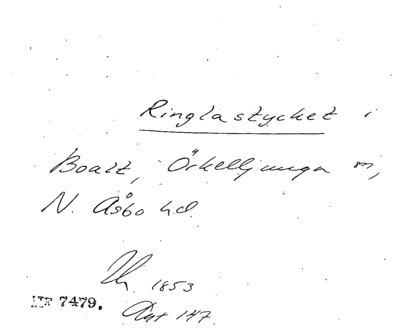 Ringlastycket i
Boalt, Örkelljunga sn,
N. Åsbo hd.
1853
NR 7479. Akt 147